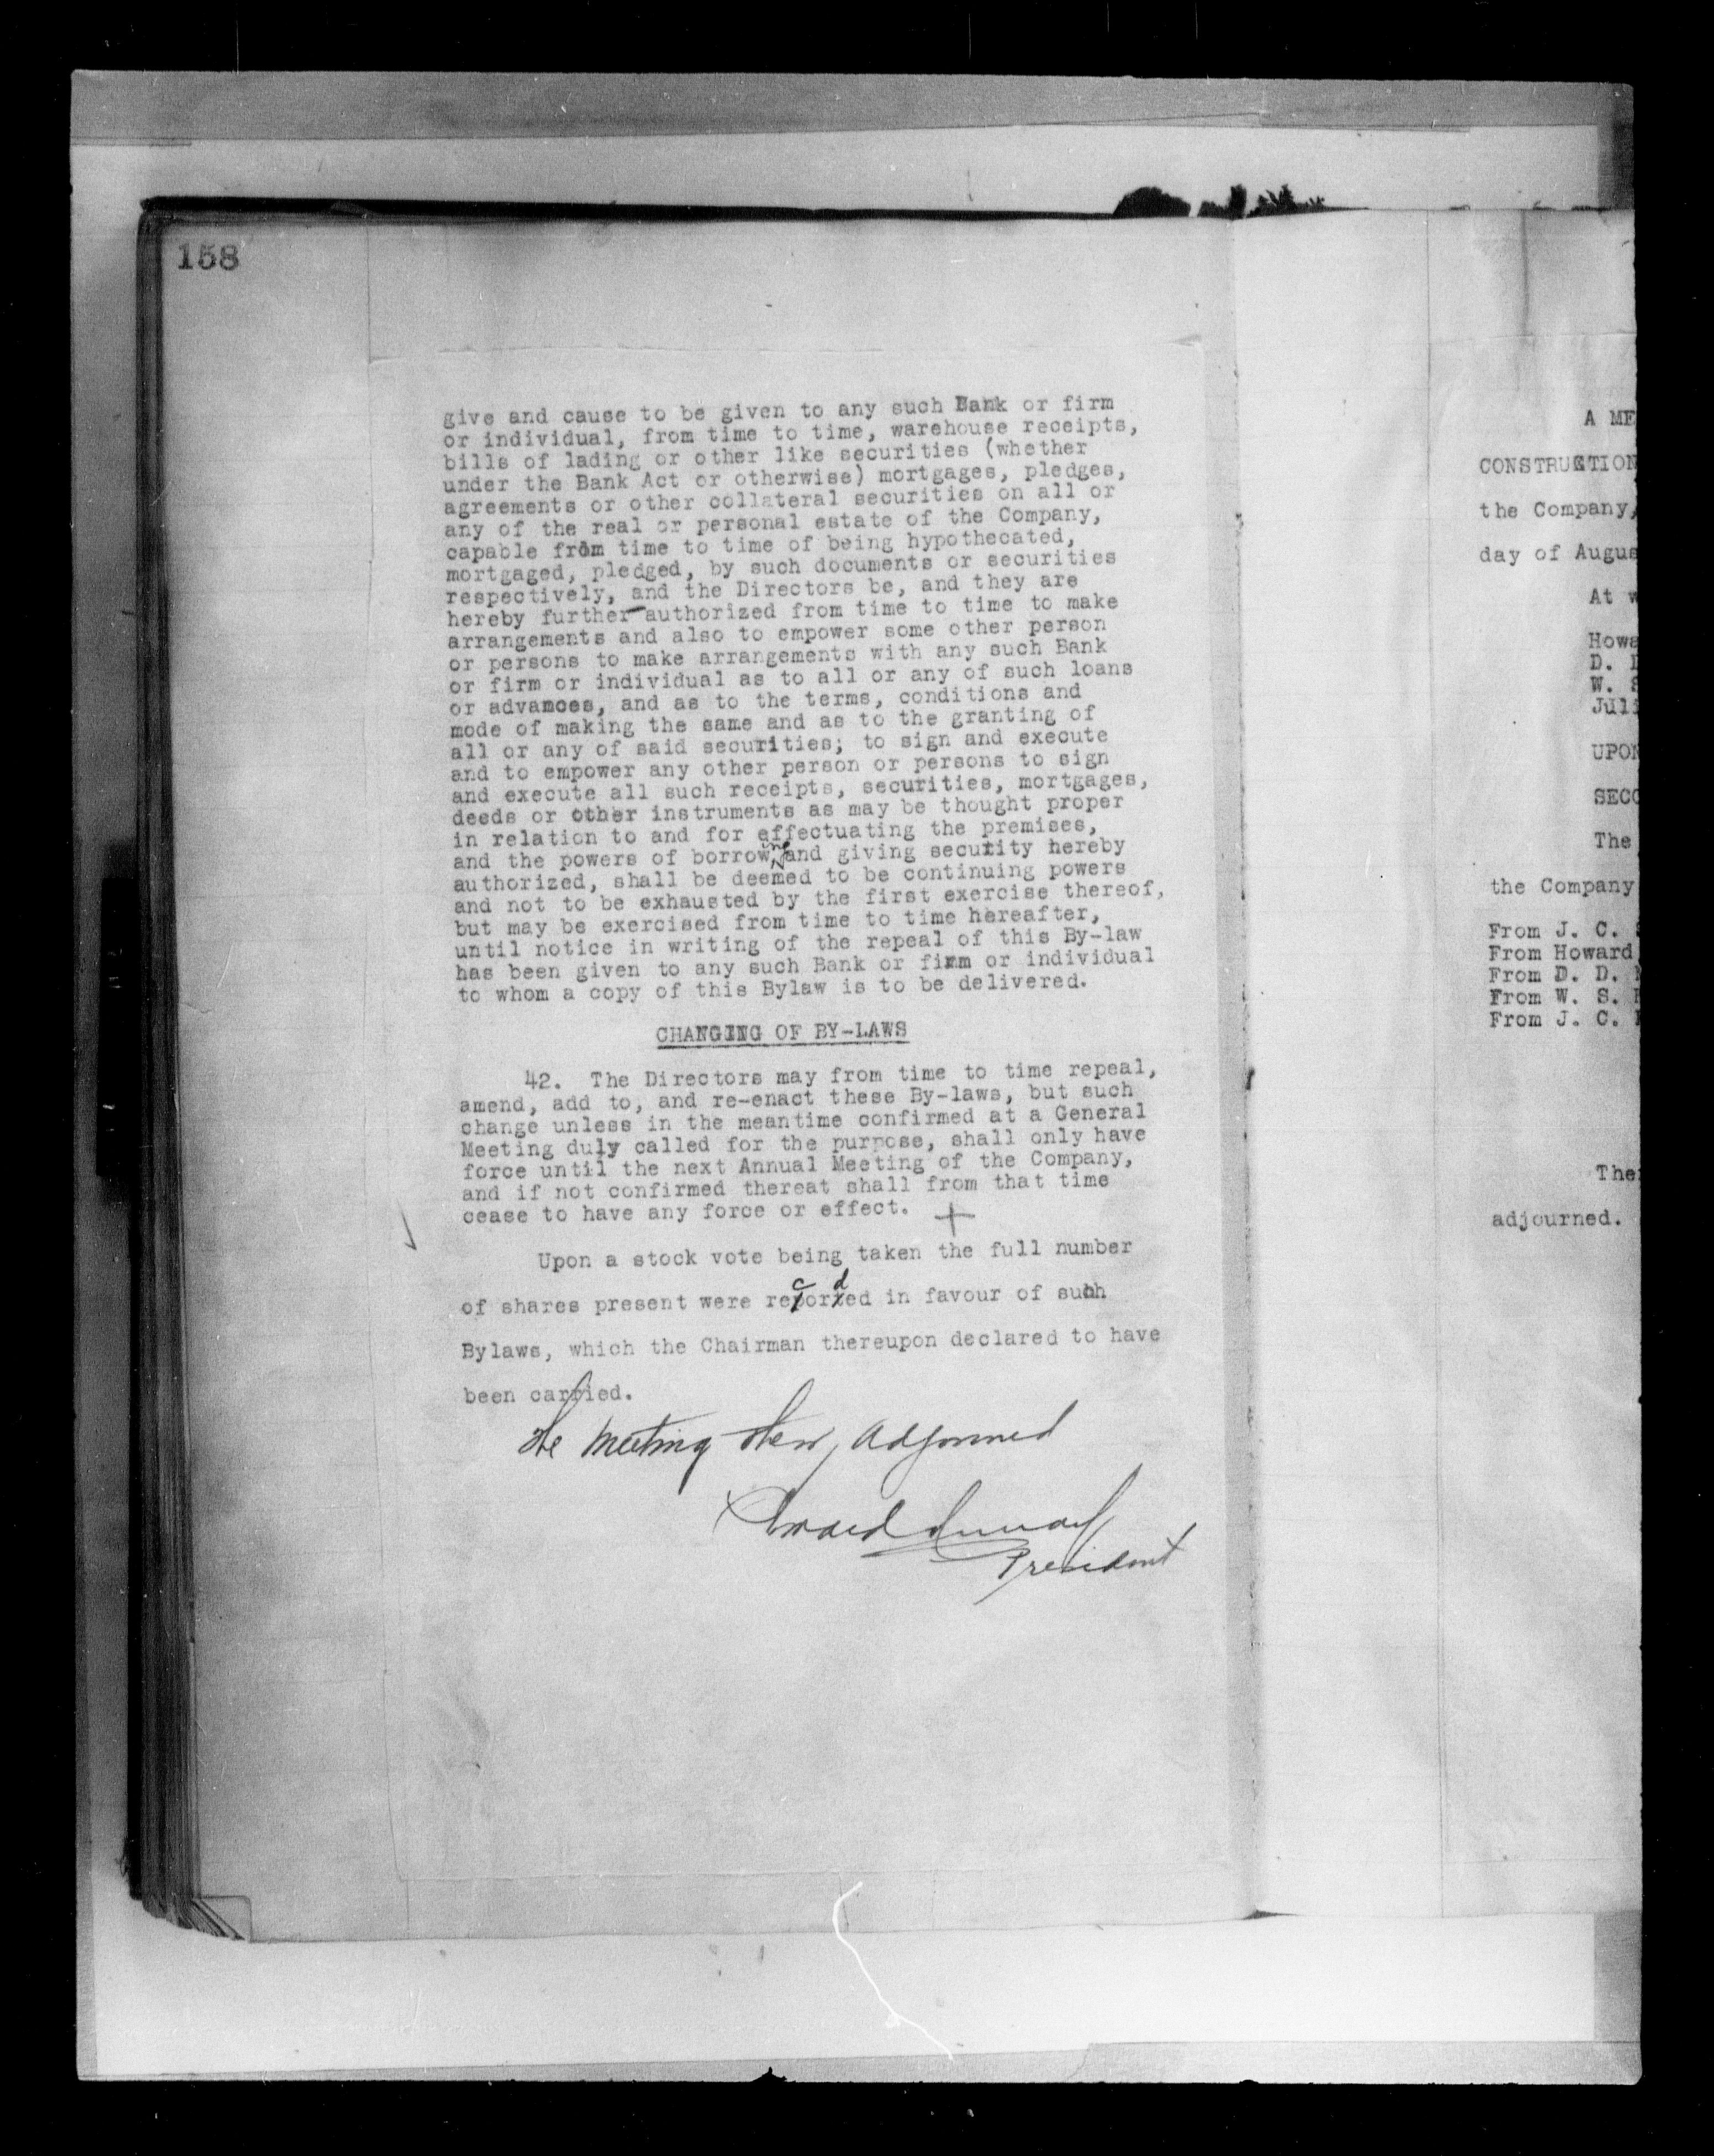 158
give and cause to be given to any such Bank or firm
or individual, from time to time, warehouse receipts,
bills of lading or other like securities (whether
under the Bank Act or otherwise) mortgages, pledges,
agreements or other collateral securities on all or
any of the real or personal estate of the Company,
capable from time to time of being hypothecated,
mortgaged, pledged, by such documents or securities
respectively, and the Directors be, and they are
hereby further authorized from time to time to make
arrangements and also to empower some other person
or persons to make arrangements with any such Bank
or firm or individual as to all or any of such loans
or advances, and as to the terms, conditions and
mode of making the same and as to the granting of
all or any of said securities; to sign and execute
and to empower any other person or persons to sign
and execute all such receipts, securities, mortgages,
deeds or other instruments as may be thought proper
in relation to and for effectuating the premises,
and the powers of borrowing and giving security hereby
authorized, shall be deemed to be continuing powers
and not to be exhausted by the first exercise thereof,
but may be exercised from time to time hereafter,
until notice in writing of the repeal of this By-law
has been given to any such Bank or firm or individual
to whom a copy of this Bylaw is to be delivered.
CHANGING OF BY-LAWS
42. The Directors may from time to time repeal,
amend, add to, and re-enact these By-laws, but such
change unless in the meantime confirmed at a General
Meeting duly called for the purpose, shall only have
force until the next Annual Meeting of the Company,
and if not confirmed thereat shall from that time
cease to have any force or effect.
Upon a stock vote being taken the full number
of shares present were recorded in favour of such
Bylaws, which the Chairman thereupon declared to have
been carried.
The Meeting then adjourned
President
A ME
CONSTRUCTION
the Company,
day of Augus
At w
Howa
D.
W. S
Juli
UPON
SECO
The
the Company
From J. C. S
From Howard
From D. D. M
From W. S.
From J. C.
The
adjourned.